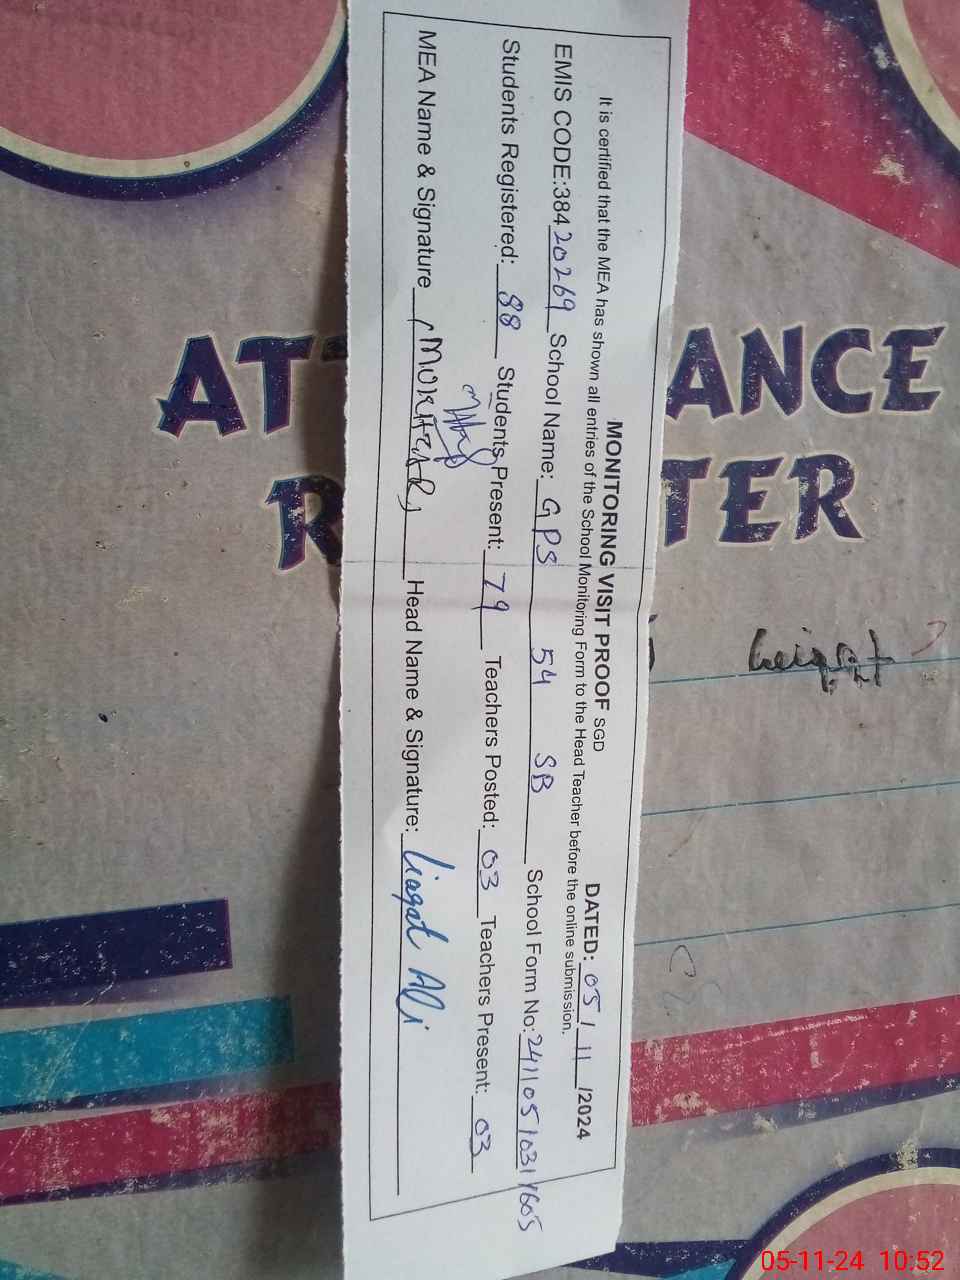 MONITORING VISIT PROOF SGD DATED: 05/11/2024
It is certified that the MEA has shown all entries of the School Monitoring Form to the Head Teacher before the online submission.
EMIS CODE:38420269 School Name: GPS 54 SB School Form No:
Students Registered: 88 Students Present: 79 Teachers Posted: 03 Teachers Present: 03
MEA Name & Signature Head Name & Signature: Liaqat Ali
height
05-11-24 10:52